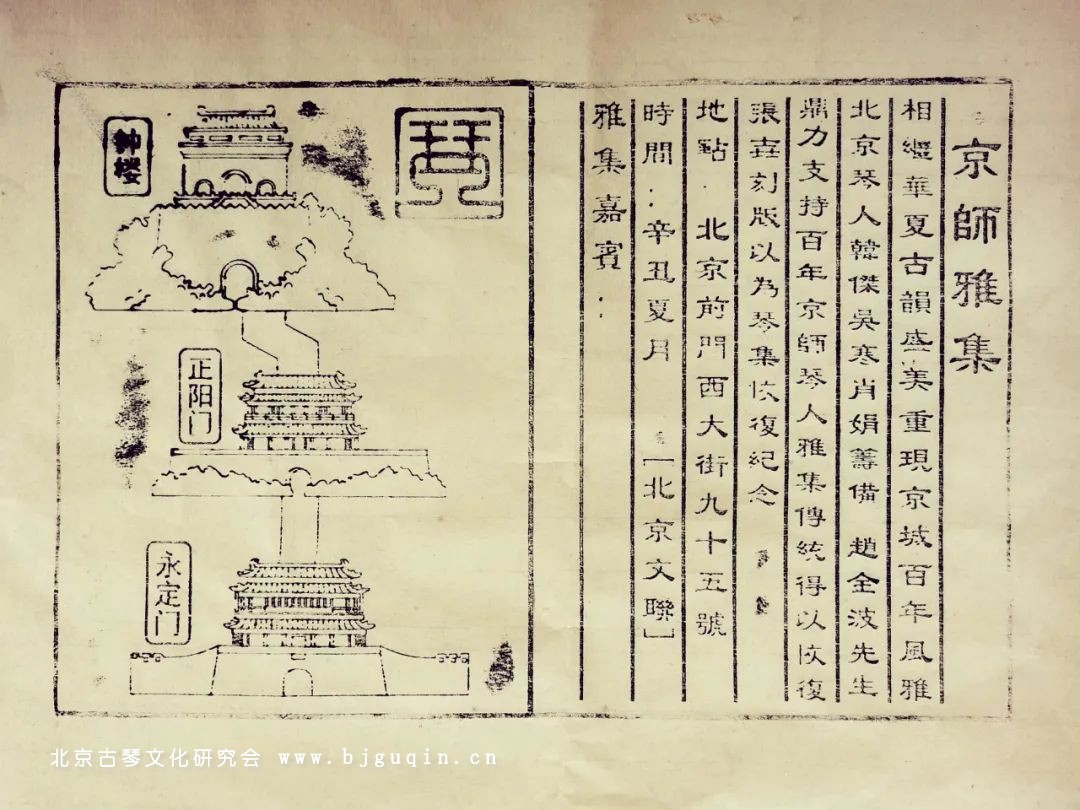 京師雅集
相繼華夏古韻盛美重現京城百年風雅
北京琴人韓傑吳寒肖娟籌備 趙全波先生
鼎力支持百年京師琴人雅集傳統得以恢復
張垚刻版以為琴集恢復紀念
地點：北京前門西大街九十五號
[北京文聯]
時間：辛丑夏月
雅集嘉賓：
琴
钟楼
正阳门
永定门
北京古琴文化研究会 www.bjguqin.cn